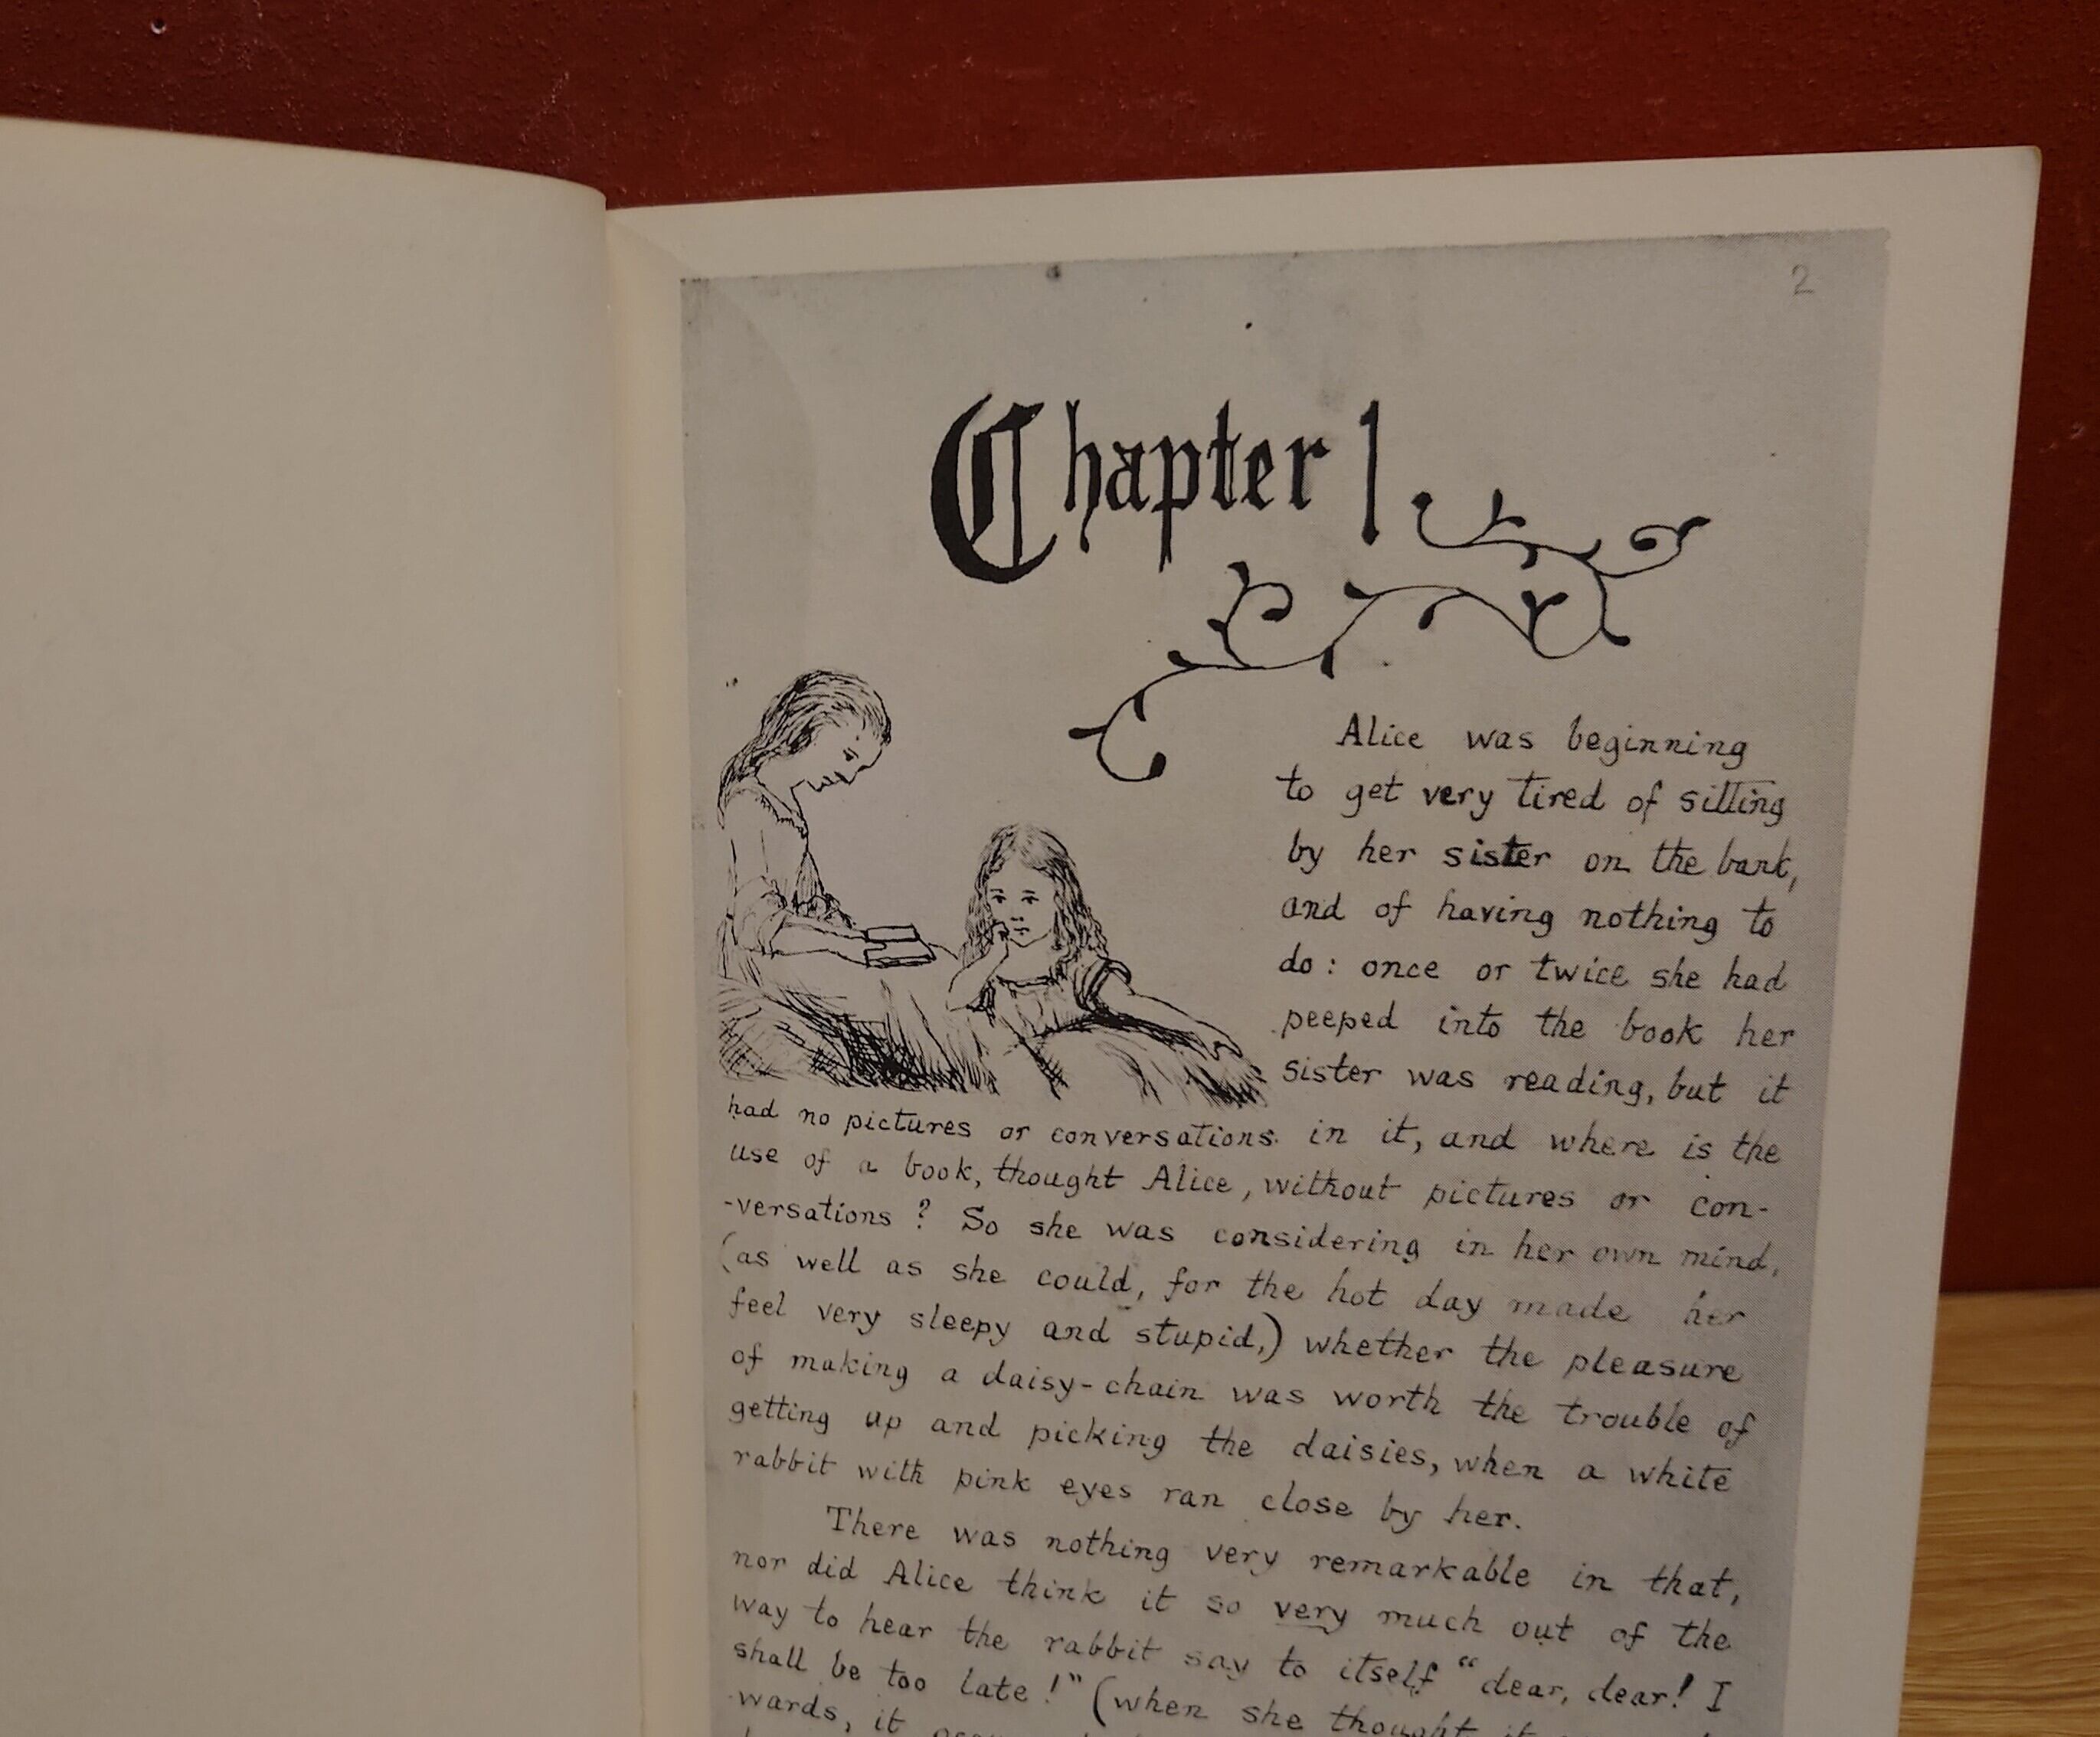 2
Chapter 1
Alice was beginning
to get very tired of sitting
by her sister on the bank,
and of having nothing to
do: once or twice she had
peeped into the book her
sister was reading, but it
had no pictures or conversations in it, and where is the
use of a book, thought Alice, without pictures or con-
-versations? So she was considering in her own mind,
(as well as she could, for the hot day made her
feel very sleepy and stupid,) whether the pleasure
of making a daisy-chain was worth the trouble of
getting up and picking the daisies, when a white
rabbit with pink eyes ran close by her.
There was nothing very remarkable in that,
nor did Alice think it so very much out of the
way to hear the rabbit say to itself "dear, dear! I
shall be too late!" (when she thought it
wards, it